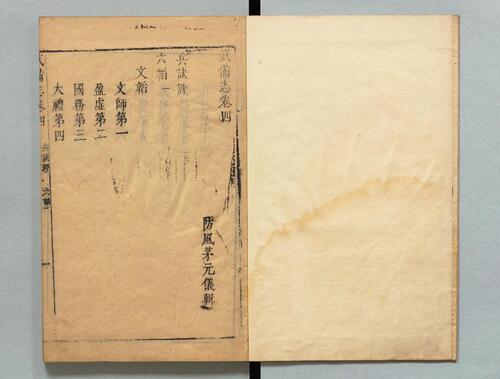 武備志卷四
防風茅元儀輯
兵訣評
六韜一
文韜
文師第一
盈虛第二
國務第三
大禮第四
武備志卷四 兵訣評 六韜一 一